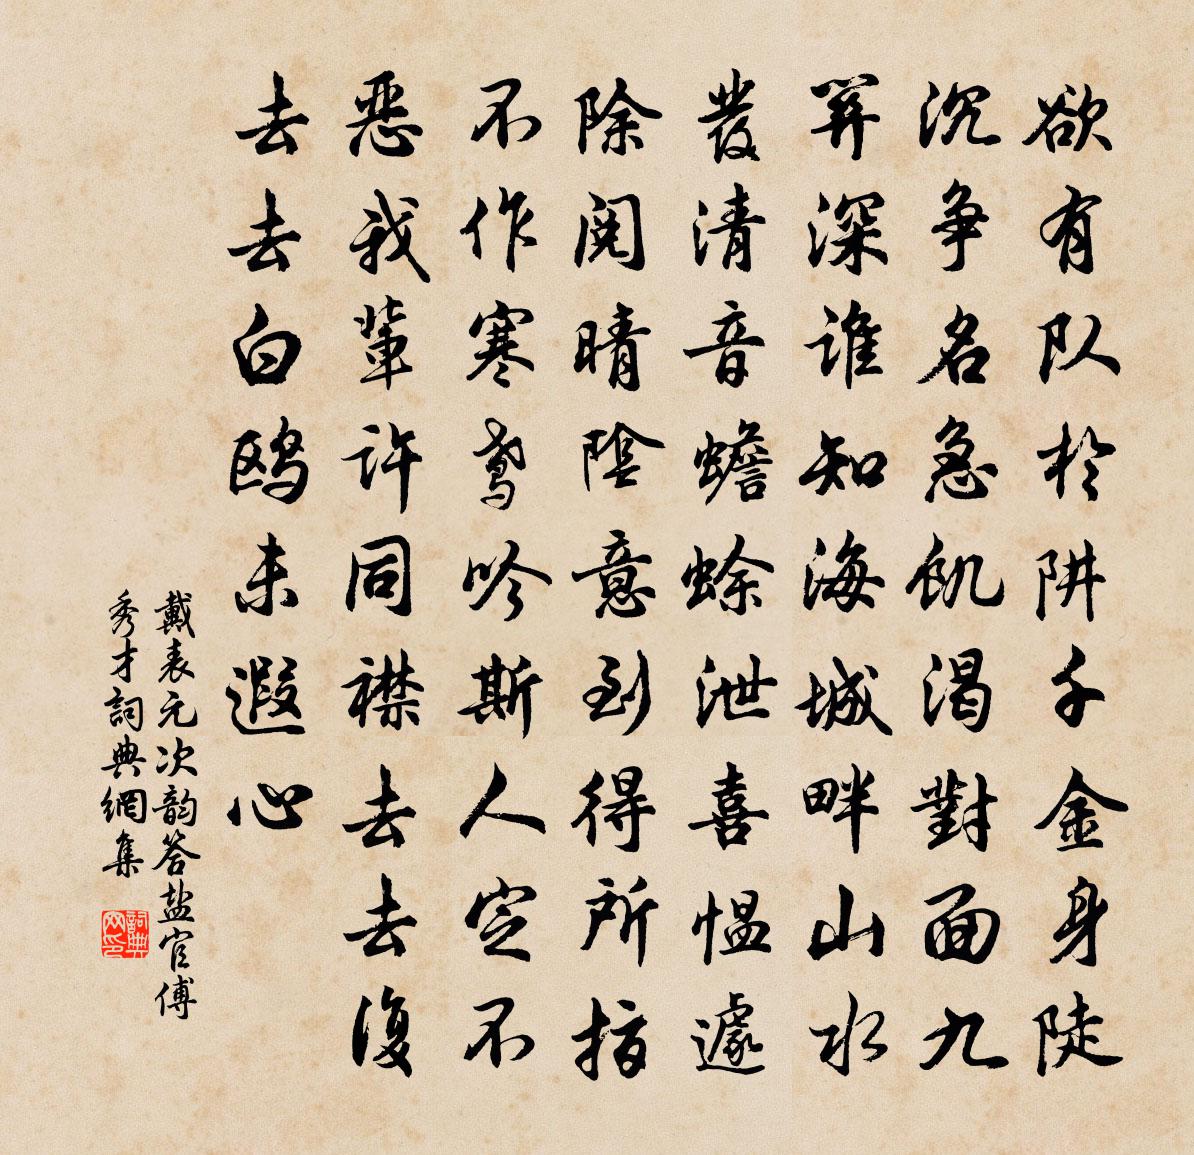 欲有队於阱千金身陡
沉争名急飢渴對面九
穽深谁知海城畔山水
發清音蟾蜍泄喜愠遽
除閱晴陰意到得所指
不作寒鸢吟斯人定不
恶我輩许同襟去去復
去去白鸥未遐心
戴表元次韵答盐官傅
秀才詞典網集
詞典网印